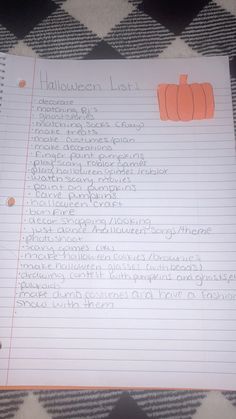 Halloween List:
· decorate
· matching pj's
· ghost stories
· matching socks (fuzzy)
· make treats
· make costumes/plan
· make decorations
· finger paint pumpkins
· play scary roblox games
· play halloween games/roblox
· watch scary movies
· paint on pumpkins
· carve pumpkins
· halloween craft
· bonfire
· decor shopping/looking
· just dance/halloween songs/theme
· photoshoot
· scary games (irl)
· make halloween cookies/brownies
· make halloween glasses (with beads)
· drawing contest with pumpkins and ghosts,
· make dumb costumes and have a fashion
show with them